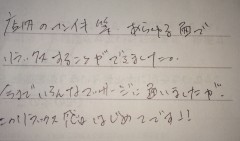 店内のインテリ等、あらゆる面で
リラックスすることができました。
今までいろんなマッサージに通いましたが、
このリラックス度ははじめてです!!